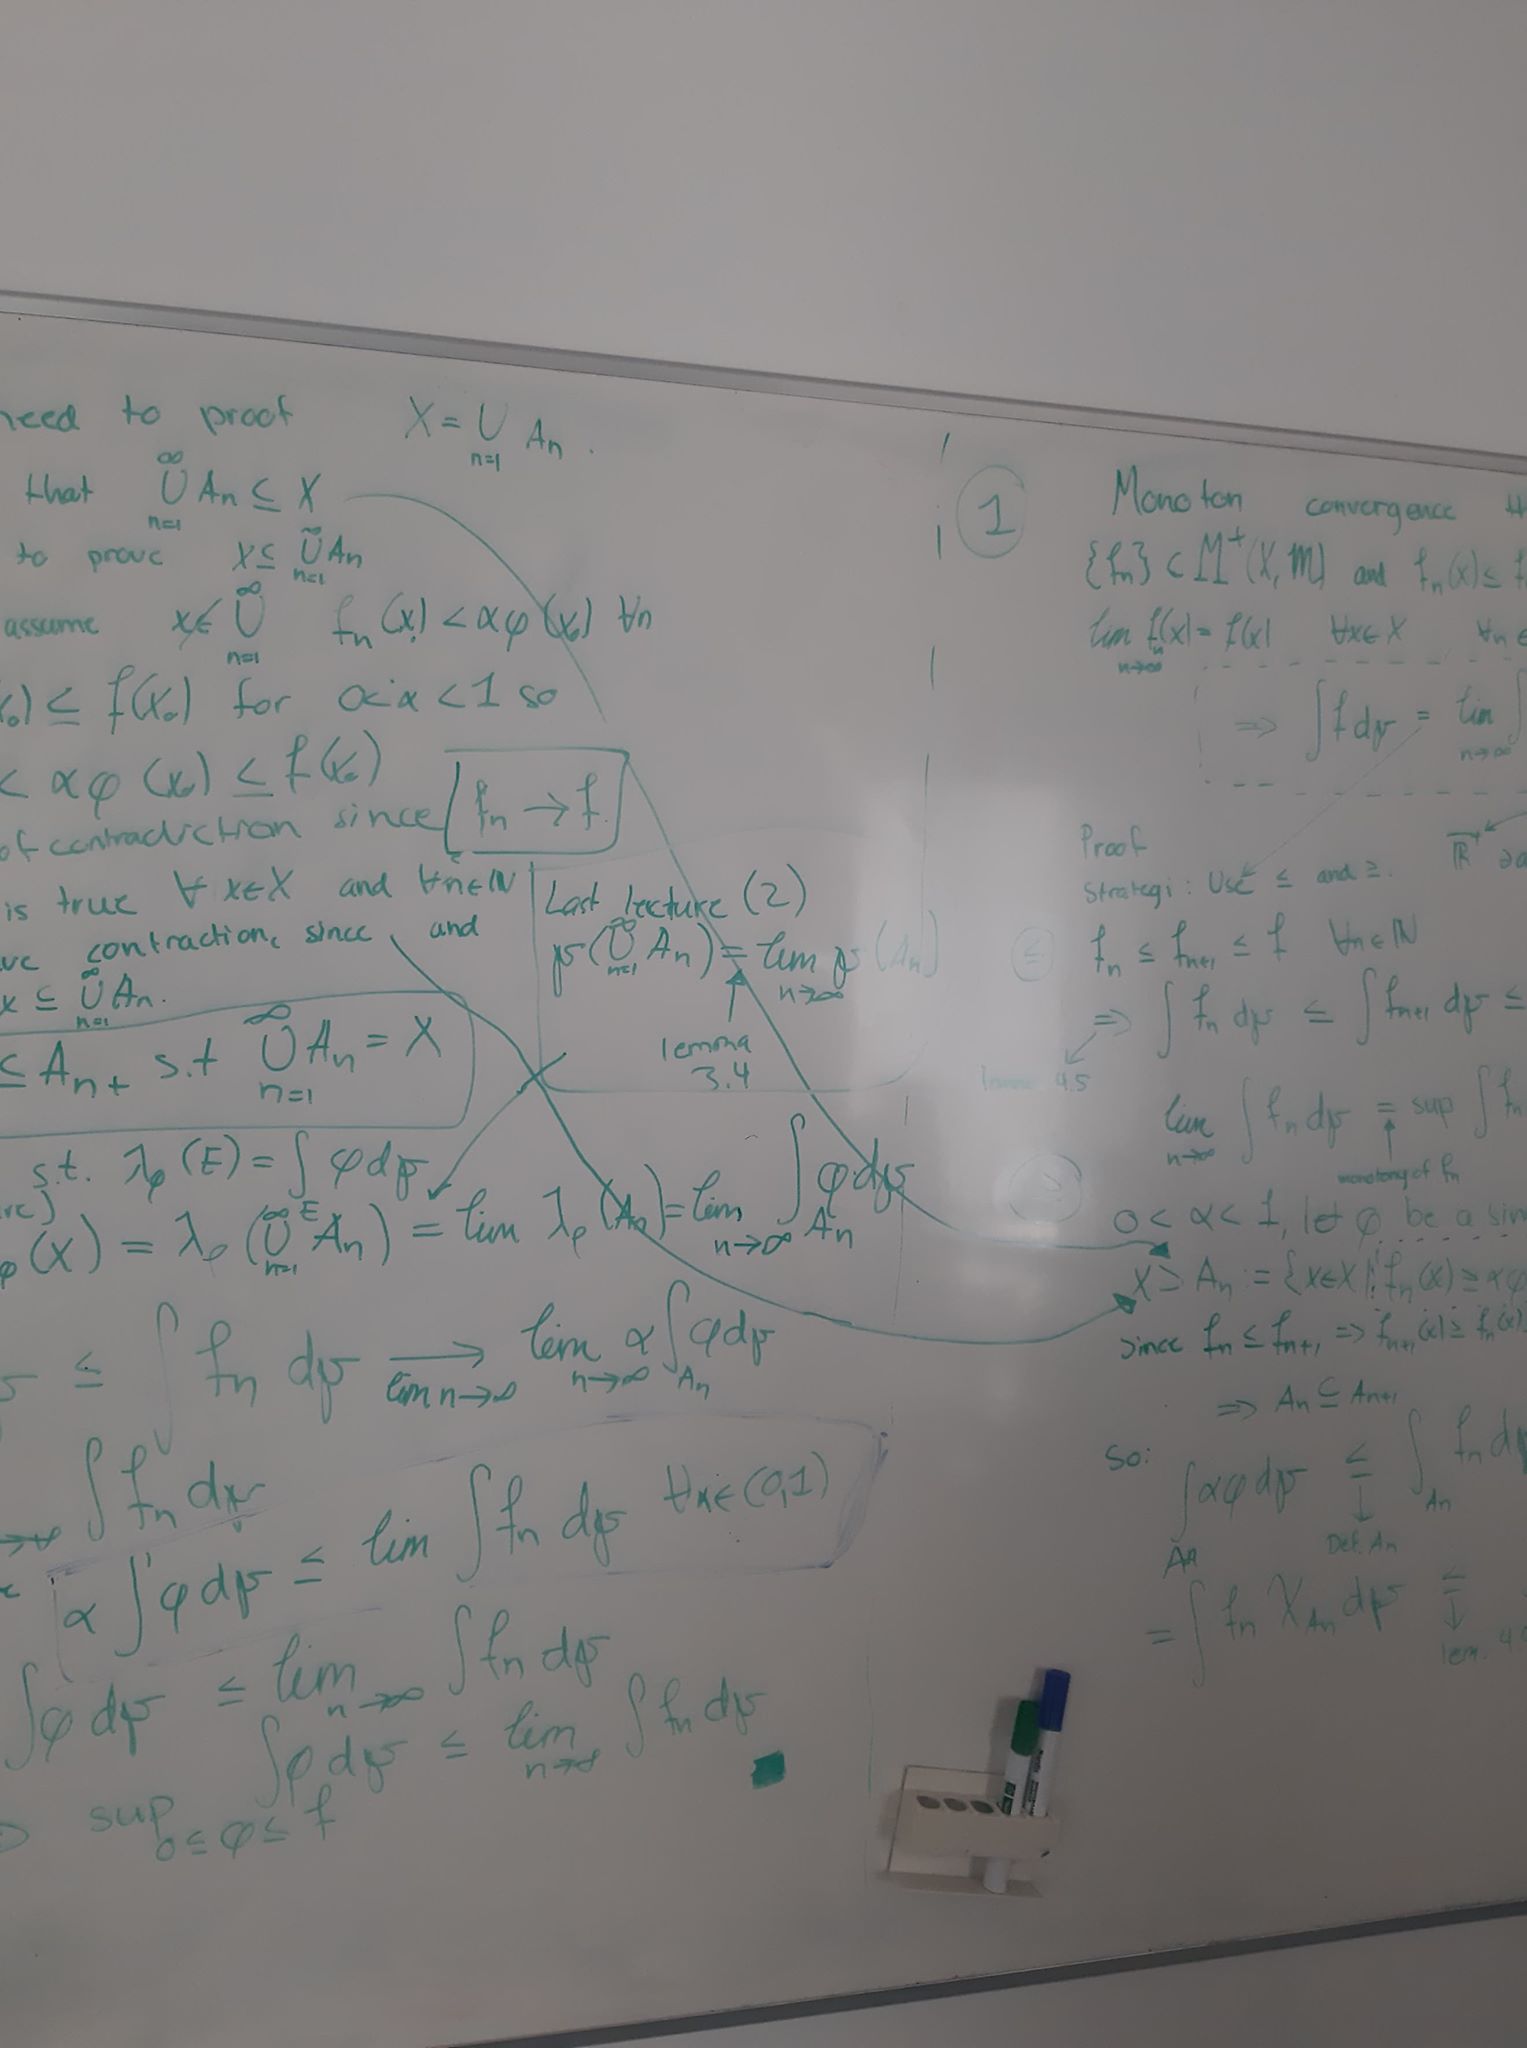 need to proof X = ∪ An .
n=1
that ∞∪n=1 An ⊆ X
to prove X ⊆ ∞∪n=1 An
assume x∉ ∞∪n=1 fn(x) < αφ(x₀) ∀n
x₀) ≤ f(x₀) for 0<α<1 so
< αφ(x₀) ≤ f(x₀)
of contradiction since fn → f
is true ∀ x∈X and ∀n∈ℕ
contraction, since and
x ⊆ ∞∪n=1 An.
⊆ An+ s.t ∞∪n=1 An = X
s.t. λφ(E) = ∫E φdμ
φ(X) = λφ(∞∪n=1 An) = lim λφ(An) = lim n→∞ ∫An φdμ
≤ ∫ fn dμ → lim n→∞ lim n→∞ α∫An φdμ
∫ fn dμ
α ∫ φdμ ≤ lim ∫ fn dμ ∀α∈(0,1)
∫φdμ ≤ lim n→∞ ∫ fn dμ
∫φdμ ≤ lim n→∞ ∫ fn dμ
sup 0≤φ≤f
Last lecture (2)
μ(∞∪n=1 An) = lim n→∞ μ(An)
lemma
3.4
1
Monoton convergence
{fn} ⊂ M⁺(X, M) and fn(x) ≤ f
lim n→∞ fn(x) = f(x) ∀x∈X ∀n∈
⇒ ∫f dμ = lim n→∞ ∫
Proof
Strategi: Use ≤ and ≥.
≤ fn ≤ fn+1 ≤ f ∀n∈ℕ
⇒ ∫ fn dμ ≤ ∫ fn+1 dμ ≤
4.5
lim n→∞ ∫ fn dμ = sup ∫ fn
monotony of fn
0 < α < 1, let φ be a sim
X ⊇ An := {x∈X | fn(x) ≥ αφ
since fn ≤ fn+1 ⇒ fn+1(x) ≥ fn(x)
⇒ An ⊆ An+1
So: ∫An αφ dμ ≤ ∫An fn dμ
Def. An
= ∫ fn χAn dμ ≤
lem.